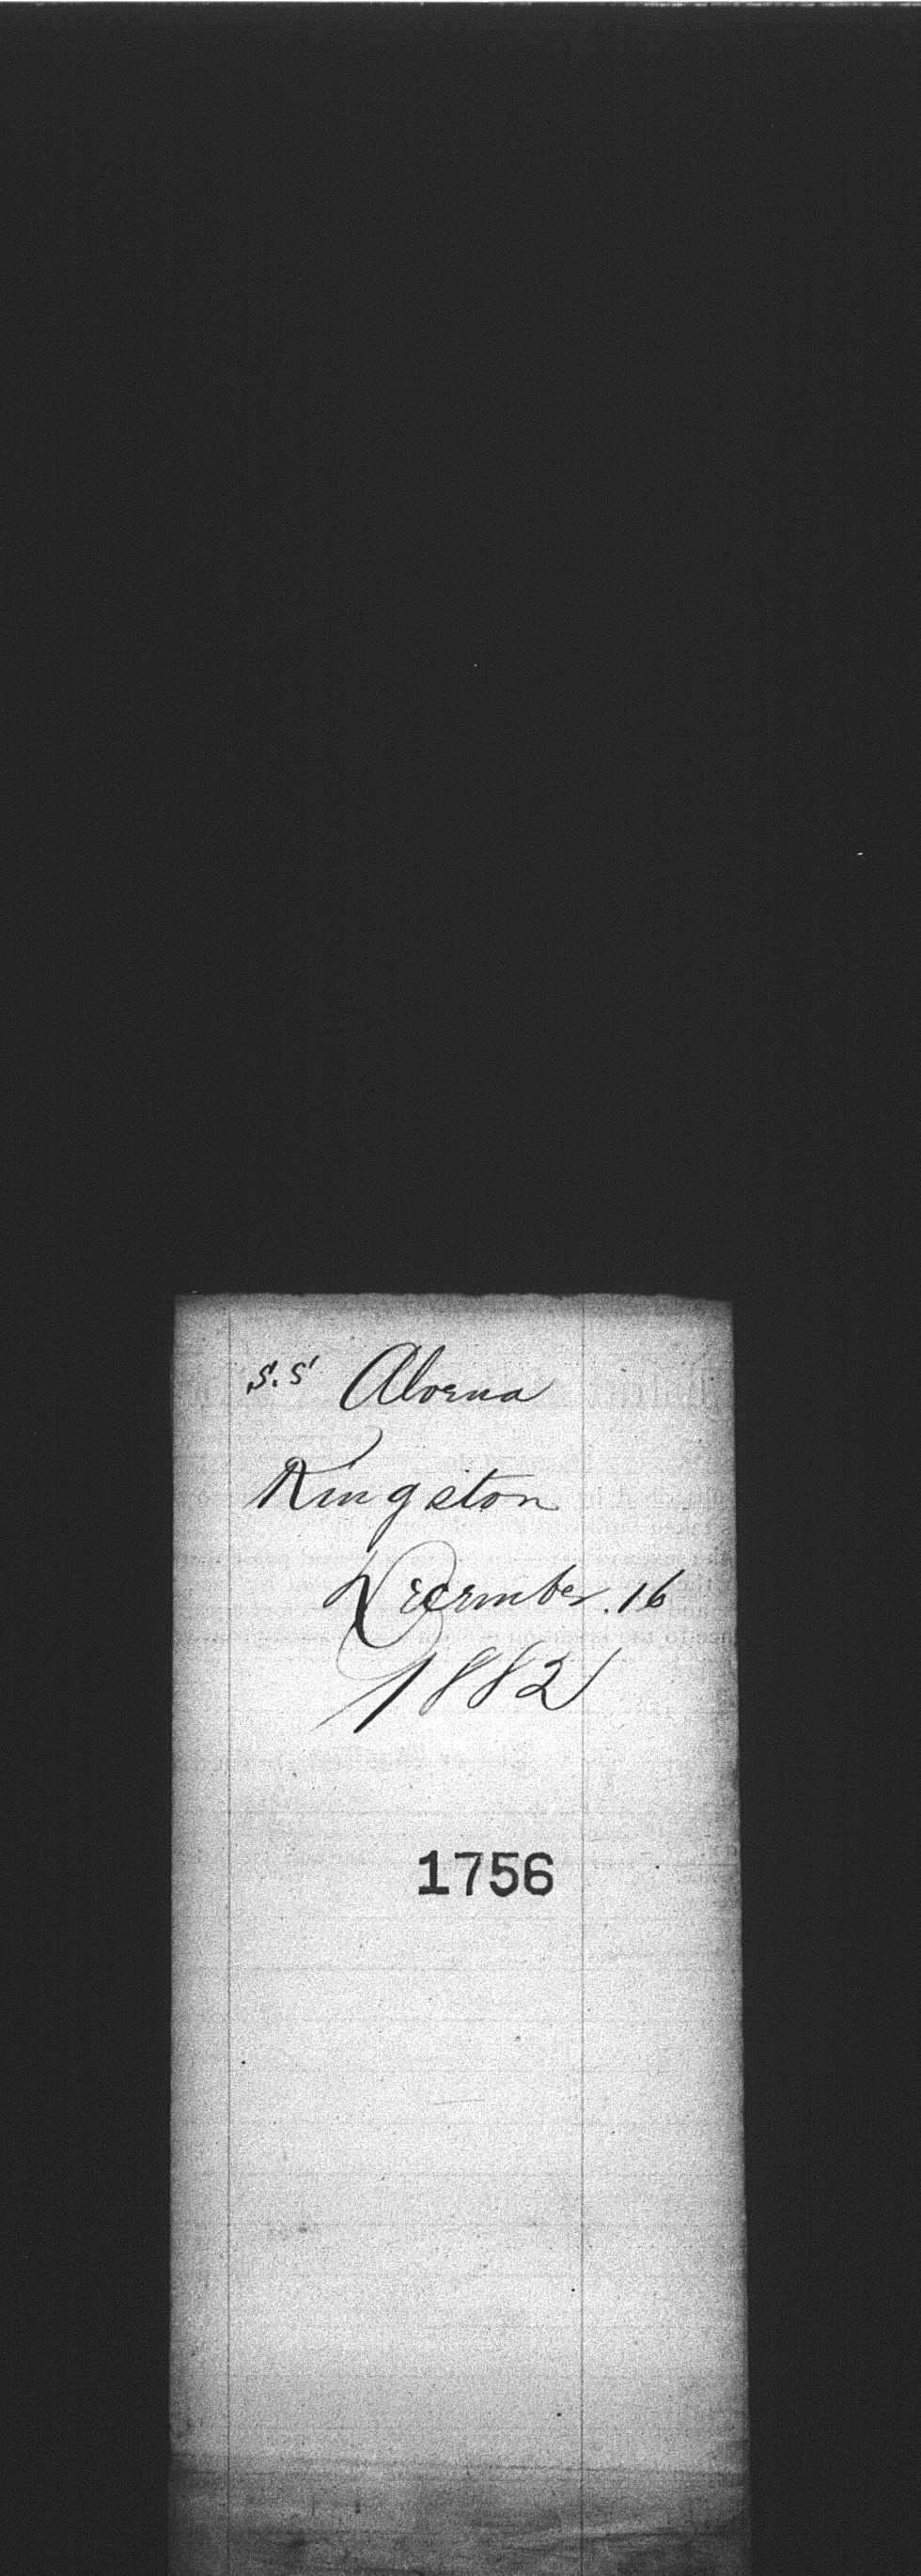 S.S Alvena
Kingston
December. 16
1882
1756